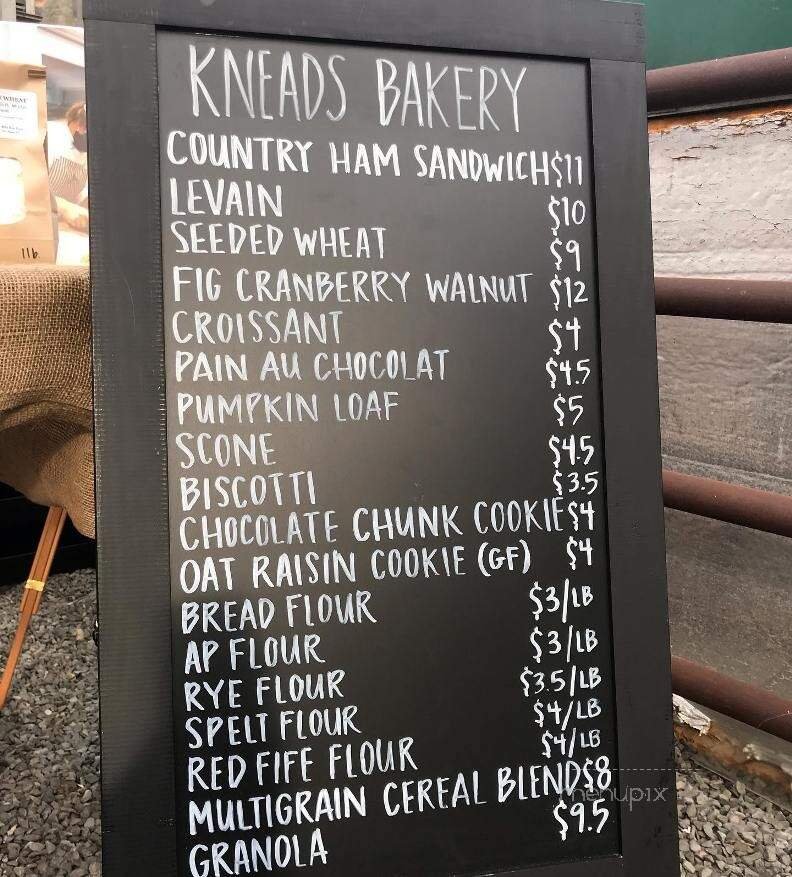 KNEADS BAKERY
COUNTRY HAM SANDWICH $11
LEVAIN $10
SEEDED WHEAT $9
FIG CRANBERRY WALNUT $12
CROISSANT $4
PAIN AU CHOCOLAT $4.5
PUMPKIN LOAF $5
SCONE $4.5
BISCOTTI $3.5
CHOCOLATE CHUNK COOKIE $4
OAT RAISIN COOKIE (GF) $4
BREAD FLOUR $3/LB
AP FLOUR $3/LB
RYE FLOUR $3.5/LB
SPELT FLOUR $4/LB
RED FIFE FLOUR $4/LB
MULTIGRAIN CEREAL BLEND $8
GRANOLA $9.5
menupix
1lb